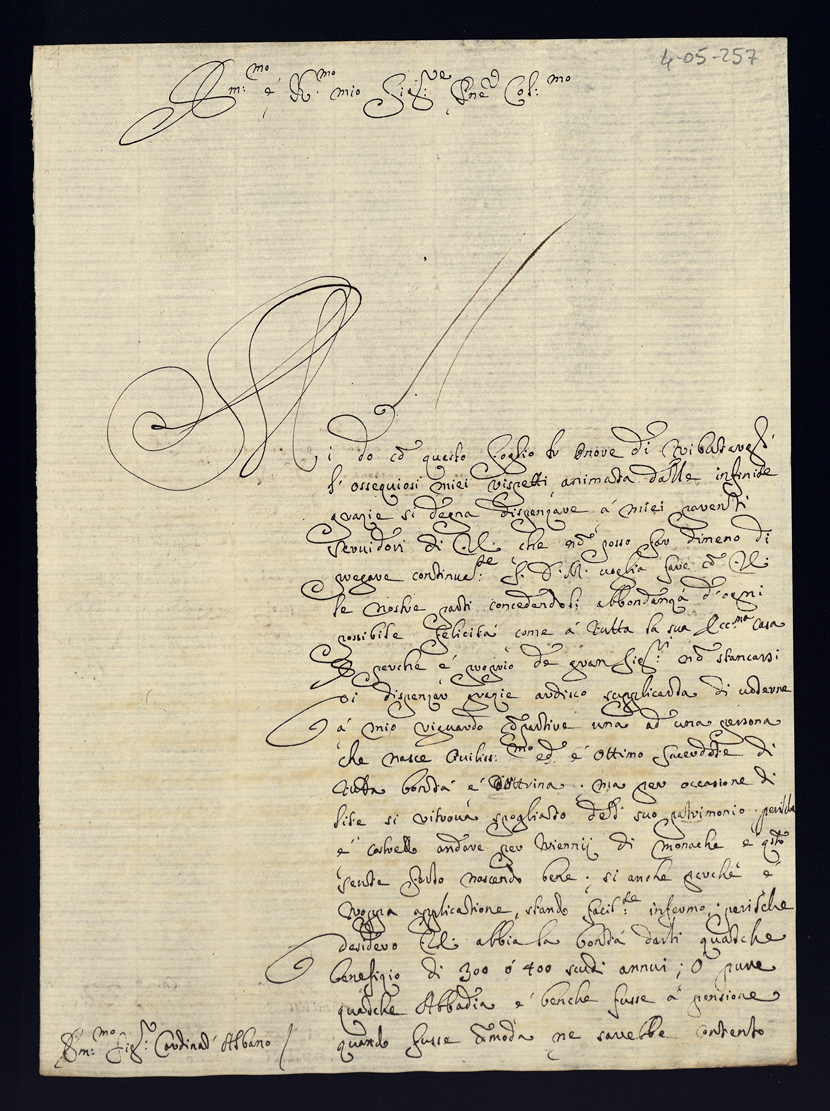 4-05-257
Em:mo é R:mo mio Sig:re Pne Col:mo
Mi do cō questo foglio le nove di ributargli
l'ossequiosi miei rispetti animata dalle infinite
grazie si degna dispenzare á miei parenti
servidori di V.E: che nō posso far dimeno di
pregare continua:te S. D. M. voglia fare cō V.E:
le nostre parti concedendoli abbondanza d'ogni
possibile felicitá come á tutta la sua Ecc:ma casa
E perche é proprio de gran Sig:ri nō stancarsi
di dispenzar grazie ardisco supplicarla di volerne
á mio riguardo cōpartire una ad una persona
che nasce Civiliss:mo ed é ottimo sacerdote di
tutta bontá é Dottrina . ma per occasione di
lite si ritrova spogliato dell suo patrimonio . perilche
é andare per di Monache e qsto
sente nascendo bene . si anche perche é
troppa applicatione, stando facil:te infermo . perilche
desidero V.E: abbia la bontá darli qualche
benefizio di 300 ó 400 scudi annui ; O pure
qualche Abbadia e benche fusse á pensione
quando fusse comoda ne sarebbe contento
Em:mo Sig:r Cardinal' Albano